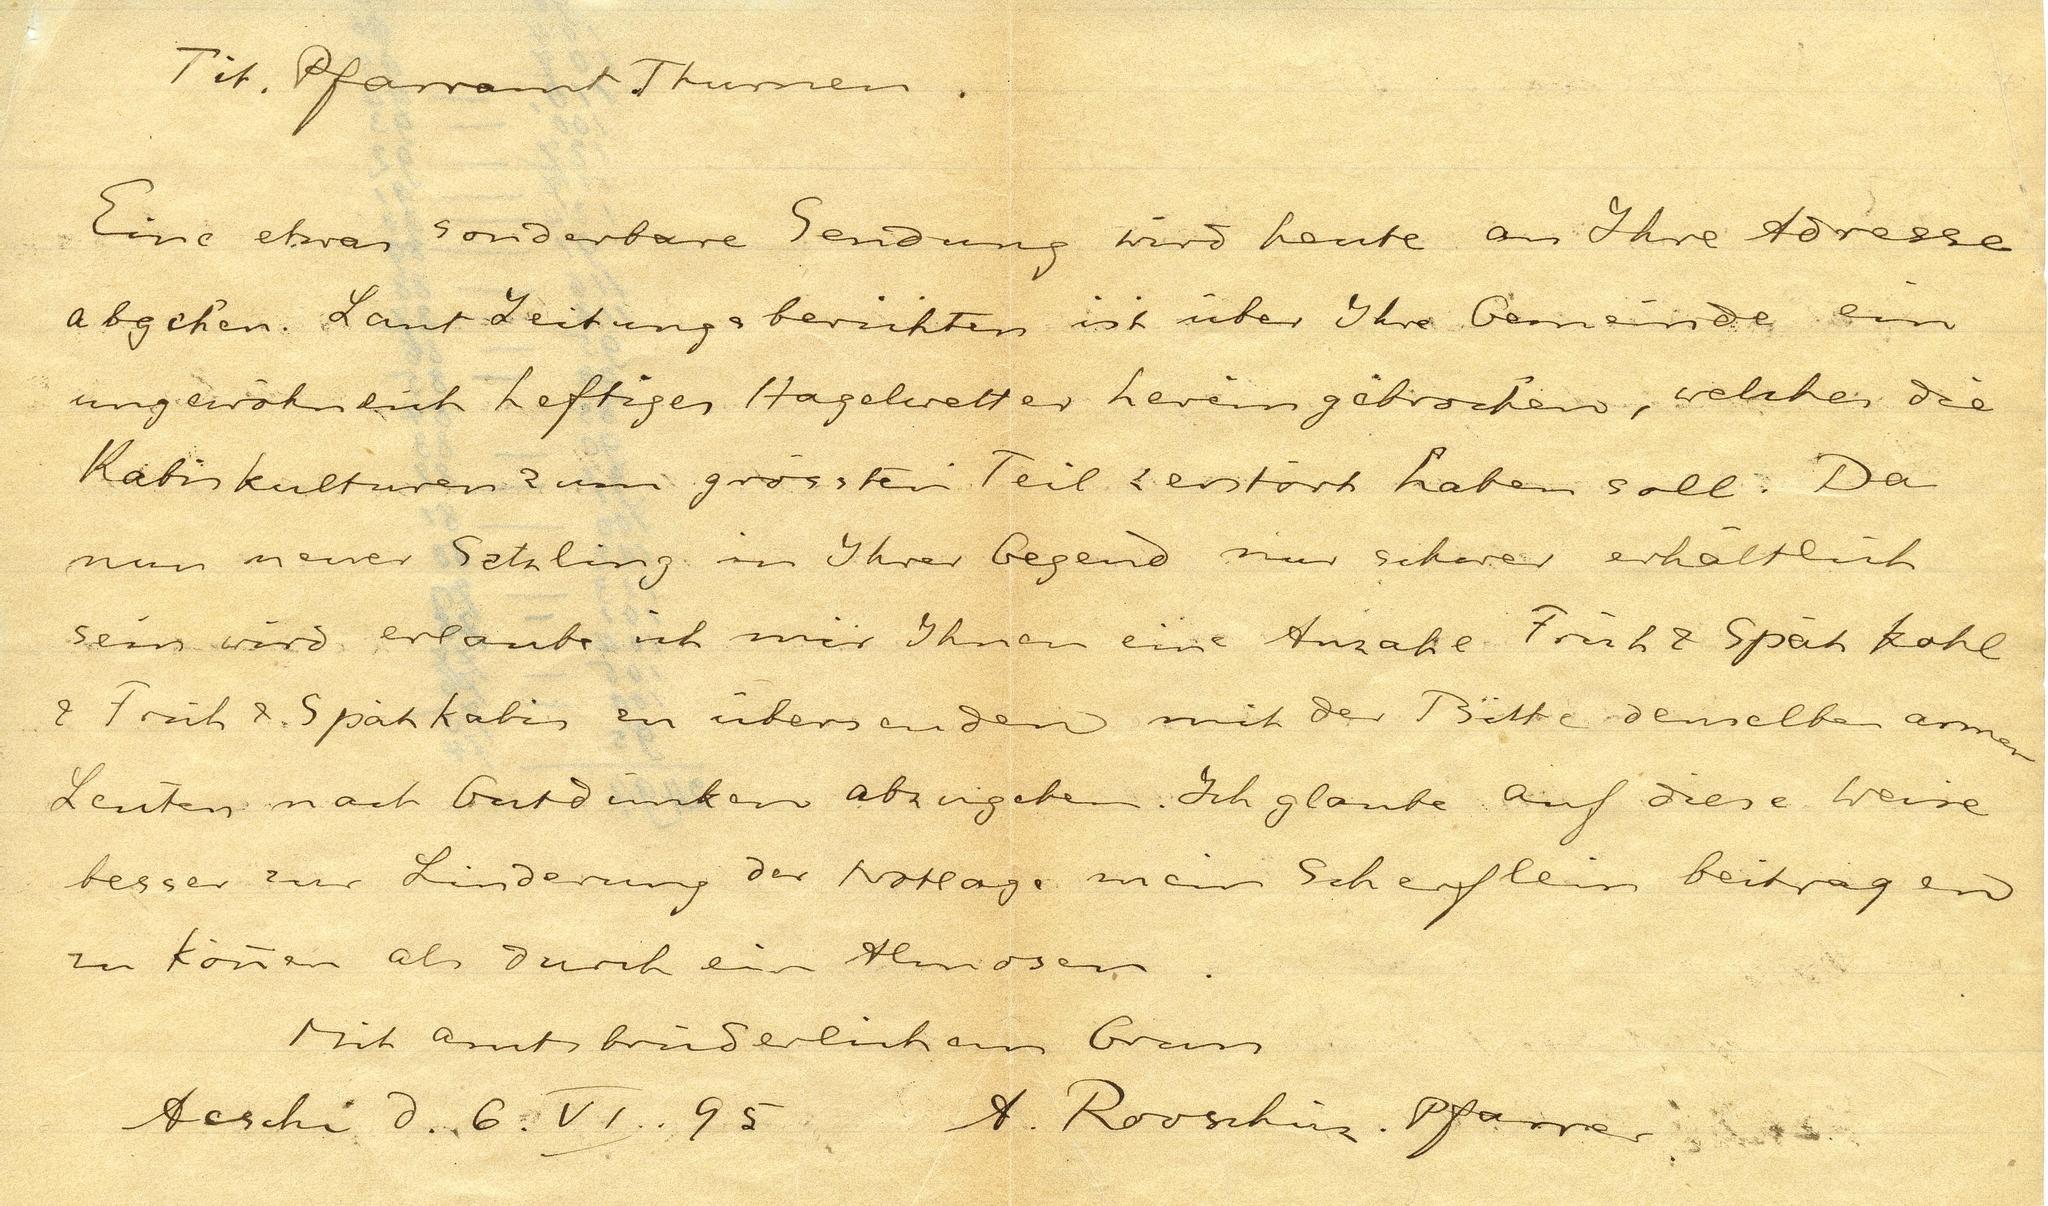 Tit. Pfarramt Thurnen.
Eine etwas sonderbare Sendung wird heute an Ihre Adresse
abgehen. Laut Zeitungsberichten ist über Ihre Gemeinde ein
ungewöhnlich heftiges Hagelwetter hereingebrochen, welches die
Kabiskulturen zum grössten Teil zerstört haben soll. Da
nun neuer Setzling in Ihrer Gegend nur schwer erhältlich
sein wird erlaube ich mir Ihnen eine Anzahl Früh & Spätkohl
& Früh & Spätkabis zu übersenden mit der Bitte denselben armen
Leuten nach Gutdünken abzugeben. Ich glaube auf diese Weise
besser zur Linderung der Notlage mein Scherflein beitragen
zu können als durch ein Almosen.
Mit amtsbrüderlichem Gruss
Aeschi d. 6. VI. 95 A. Rooschüz. Pfarrer.